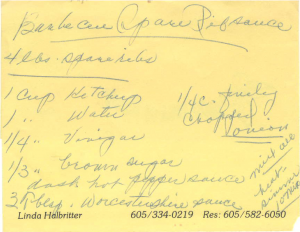 Barbecue Spare Rib sauce
4 lbs. spareribs
1 cup Ketchup
1 " Water
1/4 " Vinegar
1/3 " brown sugar
dash hot pepper sauce
3 Tblsp. Worcestershire sauce
1/4 c. finely
chopped
onion
mix all
heat
simmer
Linda Halbritter 605/334-0219 Res: 605/582-6050